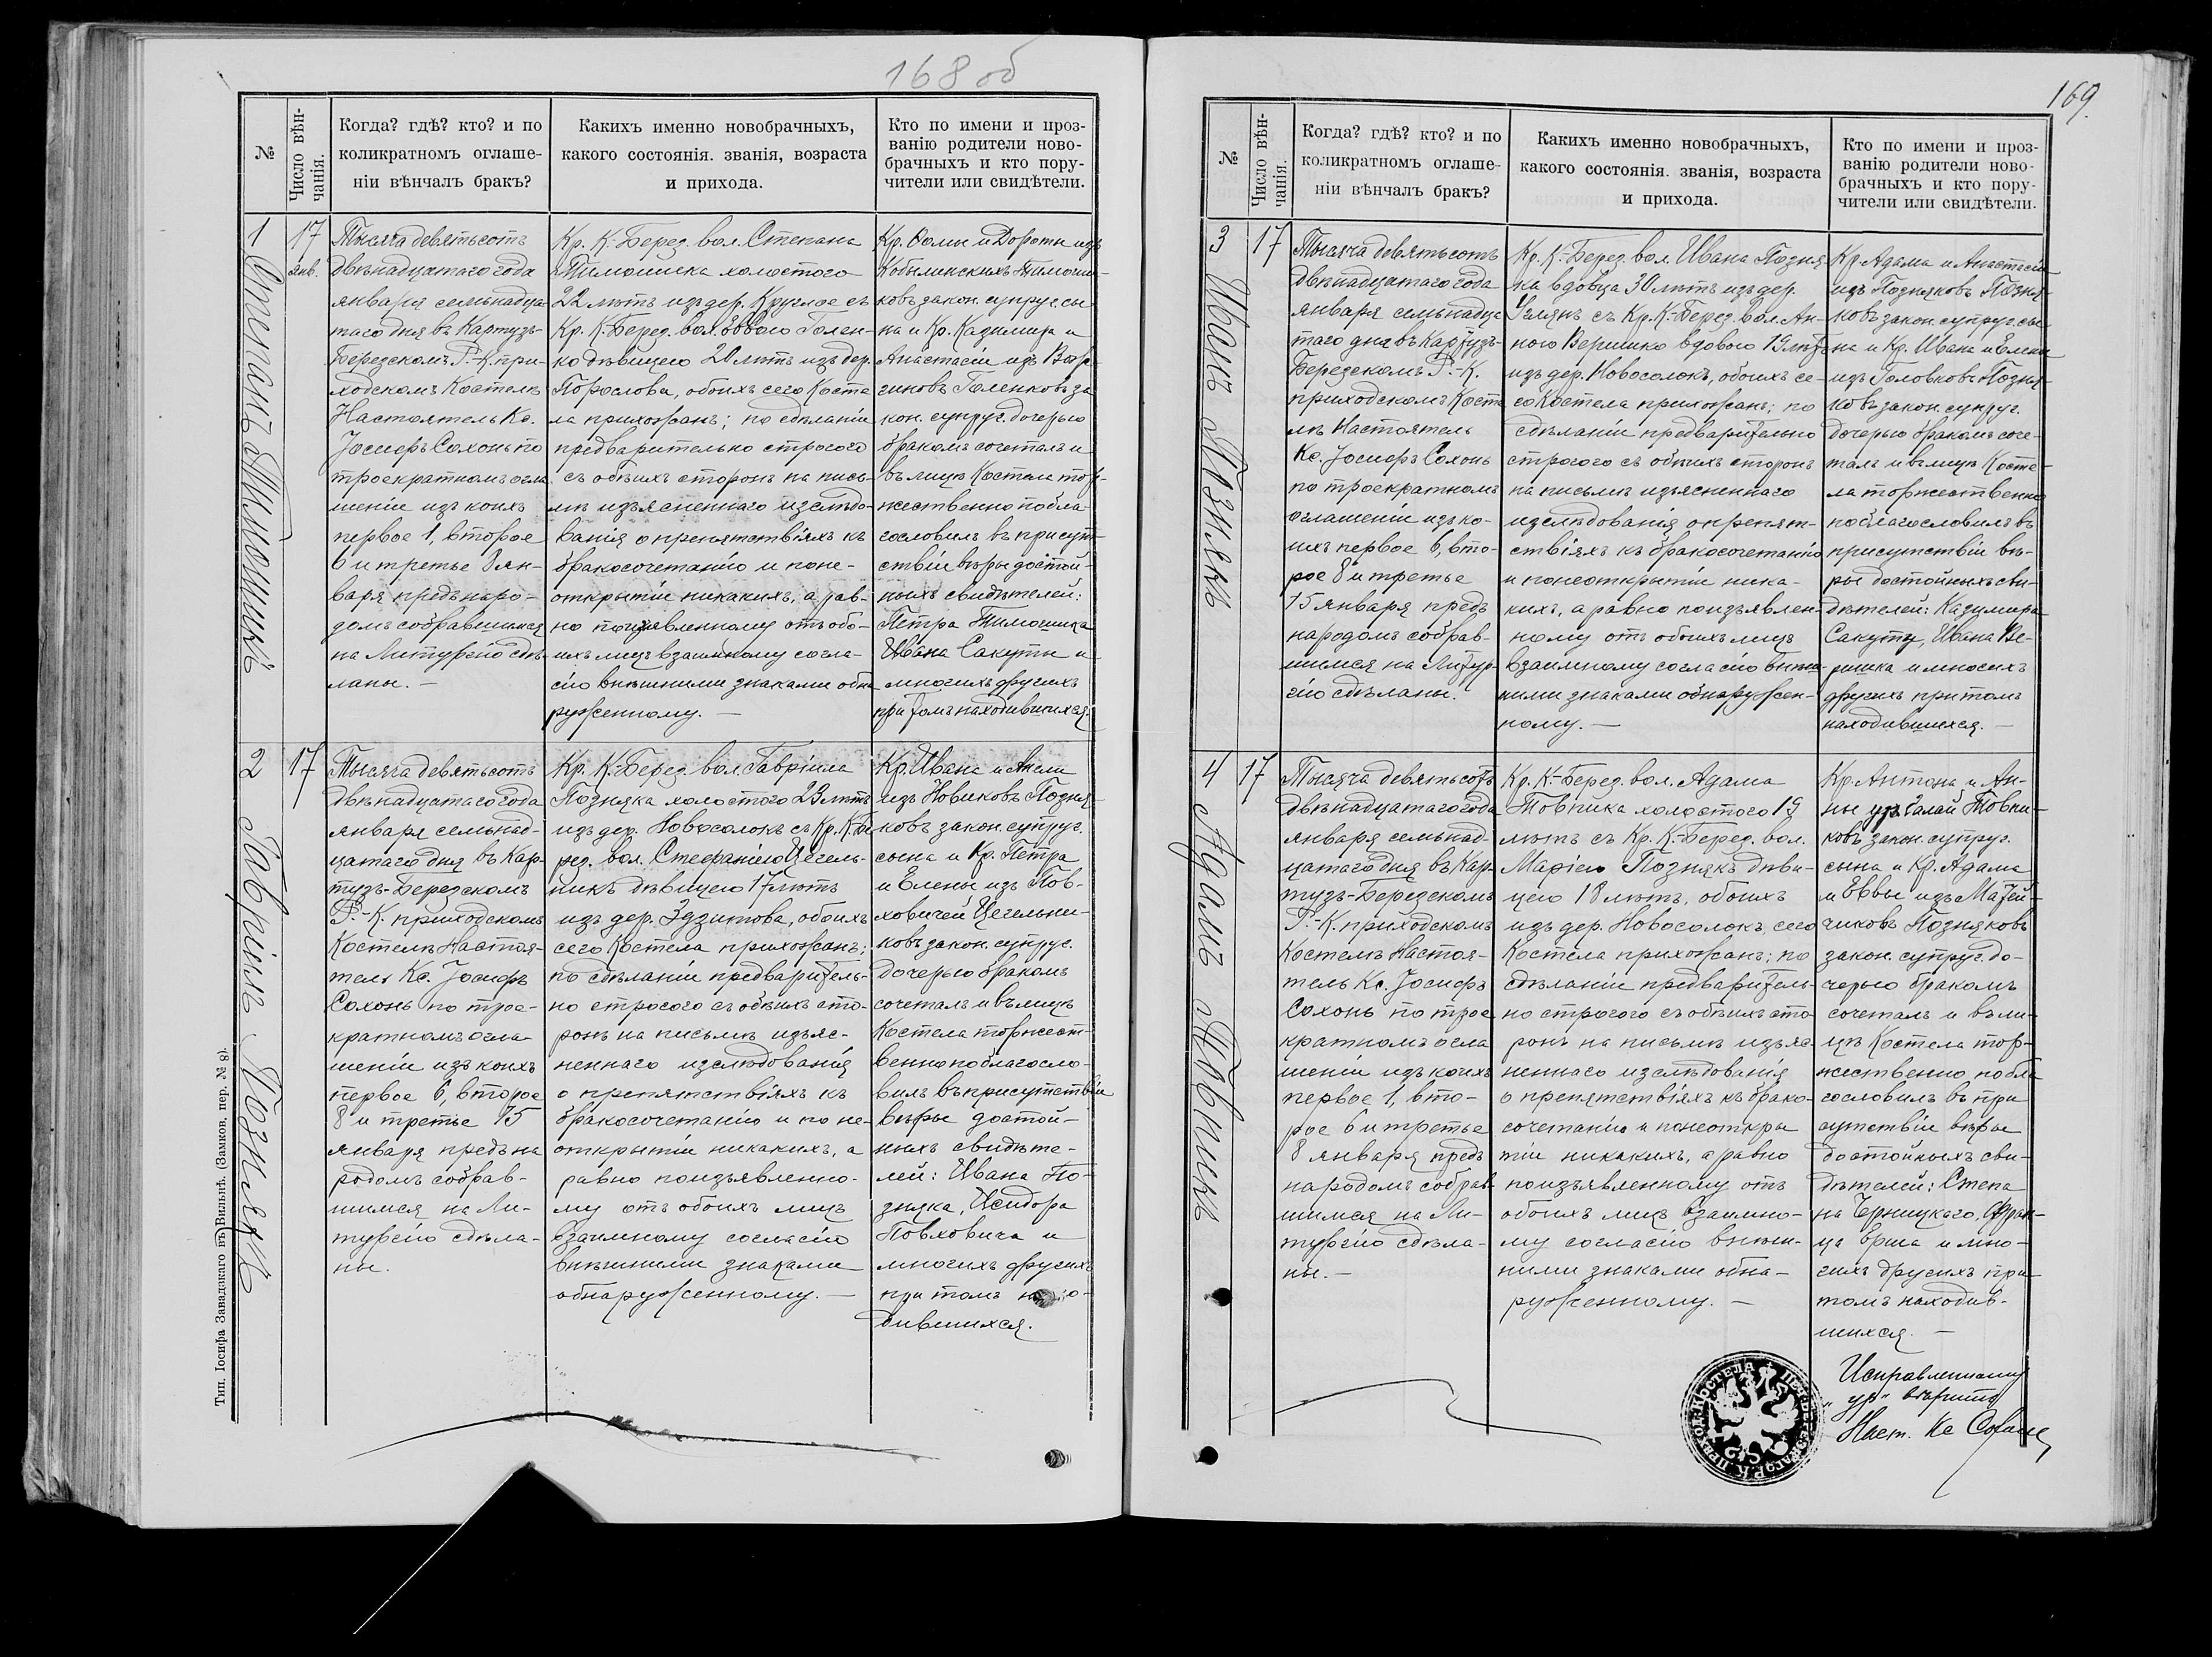 168 об
№
Число вѣн-
чанія.
Когда? гдѣ? кто? и по
коликратномъ оглаше-
ніи вѣнчалъ бракъ?
Какихъ именно новобрачныхъ,
какого состоянія. званія, возраста
и прихода.
Кто по имени и проз-
ванію родители ново-
брачныхъ и кто пору-
чители или свидѣтели.
1
Степанъ Тимошикъ
17
янв.
Тысяча девятьсотъ
двѣнадцатаго года
января семьнадца-
таго дня въ Картузъ-
Березскомъ Р.-К. при-
ходскомъ Костелѣ
Настоятель Кс.
Іосифъ Сохонь по
троекратномъ огла-
шеніи изъ коихъ
первое 1, второе
6 и третье 8 ян-
варя предъ наро-
домъ собравшимся
на Литургію сдѣ-
ланы. —
Кр. К.-Берез. вол. Степана
Тимошика холостого
22 лѣтъ изъ дер. Круглое съ
Кр. К.-Берез. вол. Еввою Голен-
ко дѣвицею 20 лѣтъ изъ дер.
Порослова, обоихъ сего Косте
ла прихожанъ; по сдѣланіи
предварительно строгого
съ обѣихъ сторонъ на пись-
мѣ изъясненнаго изслѣдо-
ванія о препятствіяхъ къ
бракосочетанію и поне-
открытіи никакихъ, а рав-
но поизъявленному отъ обо-
ихъ лицъ взаимному согла-
сію внѣшними знаками обна
руженному. —
Кр. Ѳомы и Дороты изъ
Кобылинскихъ Тимоши-
ковъ закон. супруг. сы-
на и Кр. Казимира и
Анастасіи изъ
Голенковъ за
кон. супруг. дочерью
бракомъ сочеталъ и
въ лицѣ Костела тор-
жественно побла-
гословилъ въ присут-
ствіи вѣры достой-
ныхъ свидѣтелей:
Петра Тимошика
Ивана Сакуты и
многихъ другихъ
при томъ находившихся.
2
Гавріилъ Познякъ
17
Тысяча девятьсотъ
двѣнадцатаго года
января семьнад-
цатаго дня въ Кар-
тузъ-Березскомъ
Р.-К. приходскомъ
Костелѣ Настоя-
тель Кс. Іосифъ
Сохонь по трое-
кратномъ огла-
шеніи изъ коихъ
первое 6, второе
8 и третье 15
января предъ на
родомъ собрав-
шимся на Ли-
тургію сдѣла-
ны.
Кр. К.-Берез. вол. Гавріила
Позняка холостого 23 лѣтъ
изъ дер. Новосолокъ съ Кр. К.-Бе
рез. вол. Стефаніею Цегель-
никъ дѣвицею 17 лѣтъ
изъ дер. Здзитова, обоихъ
сего Костела прихожанъ;
по сдѣланіи предваритель-
но строгого съ обѣихъ сто-
ронъ на письмѣ изъяс-
неннаго изслѣдованія
о препятствіяхъ къ
бракосочетанію и по не-
открытіи никакихъ, а
равно поизъявленно-
му отъ обоихъ лицъ
взаимному согласію
внѣшними знаками
обнаруженному. —
Кр. Ивана и
изъ Новиковъ Позня-
ковъ закон. супруг.
сына и Кр. Петра
и Елены изъ Пов-
ховичей Цегельни-
ковъ закон. супруг.
дочерью бракомъ
сочеталъ и въ лицѣ
Костела торжест-
венно поблагосло-
вилъ въ присутствіи
вѣры достой-
ныхъ свидѣте-
лей: Ивана По-
зняка, Исидора
Повховича и
многихъ другихъ
при томъ
дившихся.
Тип. Іосифа Завадзкаго въ Вильнѣ. (Замков. пер. № 8).
169.
№
Число вѣн-
чанія.
Когда? гдѣ? кто? и по
коликратномъ оглаше-
ніи вѣнчалъ бракъ?
Какихъ именно новобрачныхъ,
какого состоянія. званія, возраста
и прихода.
Кто по имени и проз-
ванію родители ново-
брачныхъ и кто пору-
чители или свидѣтели.
3
Иванъ Познякъ
17
Тысяча девятьсотъ
двѣнадцатаго года
января семьнадца
таго дня въ Картузъ-
Березскомъ Р.-К.
приходскомъ Косте
лѣ Настоятель
Кс. Іосифъ Сохонь
по троекратномъ
оглашеніи изъ ко-
ихъ первое 6, вто-
рое 8 и третье
15 января предъ
народомъ собрав-
шимся на Литур-
гію сдѣланы.
Кр. К.-Берез. вол. Ивана Позня
ка вдовца 30 лѣтъ изъ дер.
Углянъ съ Кр. К.-Берез. вол. Ан-
ною Веришко вдовою 19 лѣтъ
изъ дер. Новосолокъ, обоихъ се-
го Костела прихожанъ; по
сдѣланіи предварительно
строгого съ обѣихъ сторонъ
на письмѣ изъясненнаго
изслѣдованія о препят-
ствіяхъ къ бракосочетанію
и понеоткрытіи ника-
кихъ, а равно поизъявлен-
ному отъ обоихъ лицъ
взаимному согласію внѣш-
ними знаками обнаружен-
ному. —
Кр. Адама и Анастасіи
изъ Позняковъ Позня-
ковъ закон. супруг. сы-
на и Кр. Ивана и Елены
изъ Головковъ Позня-
ковъ закон. супруг.
дочерью бракомъ соче-
талъ и въ лицѣ Косте-
ла торжественно
поблагословилъ въ
присутствіи вѣ-
ры достойныхъ сви-
дѣтелей: Казимира
Сакуты, Ивана Ве-
ришка и многихъ
другихъ при томъ
находившихся. —
4
Адамъ Товпикъ
17
Тысяча девятьсотъ
двѣнадцатаго года
января семьнад-
цатаго дня въ Кар-
тузъ-Березскомъ
Р.-К. приходскомъ
Костелѣ Настоя-
тель Кс. Іосифъ
Сохонь по трое
кратномъ огла
шеніи изъ коихъ
первое 1, вто-
рое 6 и третье
8 января предъ
народомъ собрав-
шимся на Ли-
тургію сдѣла-
ны. —
Кр. К.-Берез. вол. Адама
Товпика холостого 19
лѣтъ съ Кр. К.-Берез. вол.
Маріею Познякъ дѣви-
цею 18 лѣтъ, обоихъ
изъ дер. Новосолокъ, сего
Костела прихожанъ; по
сдѣланіи предваритель-
но строгого съ обѣихъ сто
ронъ на письмѣ изъяс
неннаго изслѣдованія
о препятствіяхъ къ брако-
сочетанію и понеоткры
тіи никакихъ, а равно
поизъявленному отъ
обоихъ лицъ взаимно-
му согласію внѣш-
ними знаками обна-
руженному. —
Кр. Антона и Ан-
ны изъ Галай Товпи-
ковъ закон. супруг.
сына и Кр. Адама
и Еввы изъ Матей-
чиковъ Позняковъ
закон. супруг. до-
черью бракомъ
сочеталъ и въ ли-
цѣ Костела тор-
жественно побла
гословилъ въ при
сутствіи вѣры
достойныхъ сви-
дѣтелей: Степа
на Черницкаго, Фран-
ца и мно-
гихъ другихъ при
томъ находив-
шихся. —
Исправленному
Наст. Кс Сохонь